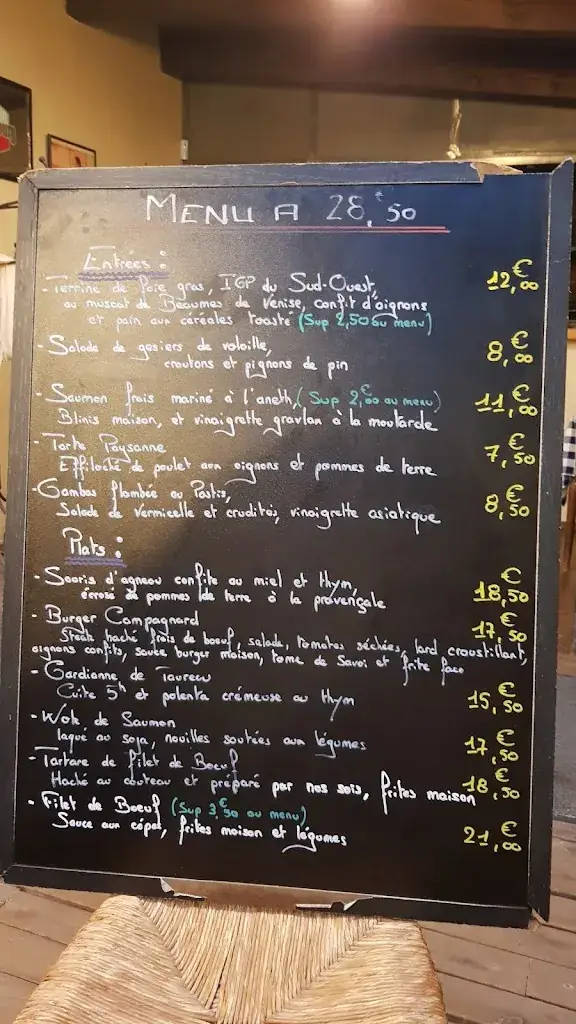 MENU A 28,€50
Entrées :
- Terrine de foie gras, IGP du Sud-Ouest, 12,€00
au muscat de Beaumes de Venise, confit d'oignons
et pain aux céréales toasté (Sup 2,50 au menu)
- Salade de gesiers de volaille, 8,€00
croutons et pignons de pin
- Saumon frais mariné à l'aneth, (Sup 2,€00 au menu) 11,€00
Blinis maison, et vinaigrette gravlax à la moutarde
- Tarte Paysanne 7,€50
Effiloché de poulet aux oignons et pommes de terre
- Gambas flambée au Pastis, 8,€50
Salade de vermicelle et crudités, vinaigrette asiatique
Plats :
- Souris d'agneau confite au miel et thym, 18,€50
écrasé de pommes de terre à la provençale
- Burger Campagnard 17,€50
Steak haché frais de boeuf, salade, tomates séchées, lard croustillant,
oignons confits, sauce burger maison, tome de Savoi et frite
- Gardianne de Taureau 15,€50
Cuite 5h et polenta crémeuse au thym
- Wok de Saumon 17,€50
laqué au soja, nouilles soutées aux légumes
- Tartare de filet de Boeuf 18,€50
Haché au couteau et préparé par nos sois, frites maison
- Filet de Boeuf (Sup 3,€50 au menu) 21,€00
Sauce aux cépes, frites maison et légumes